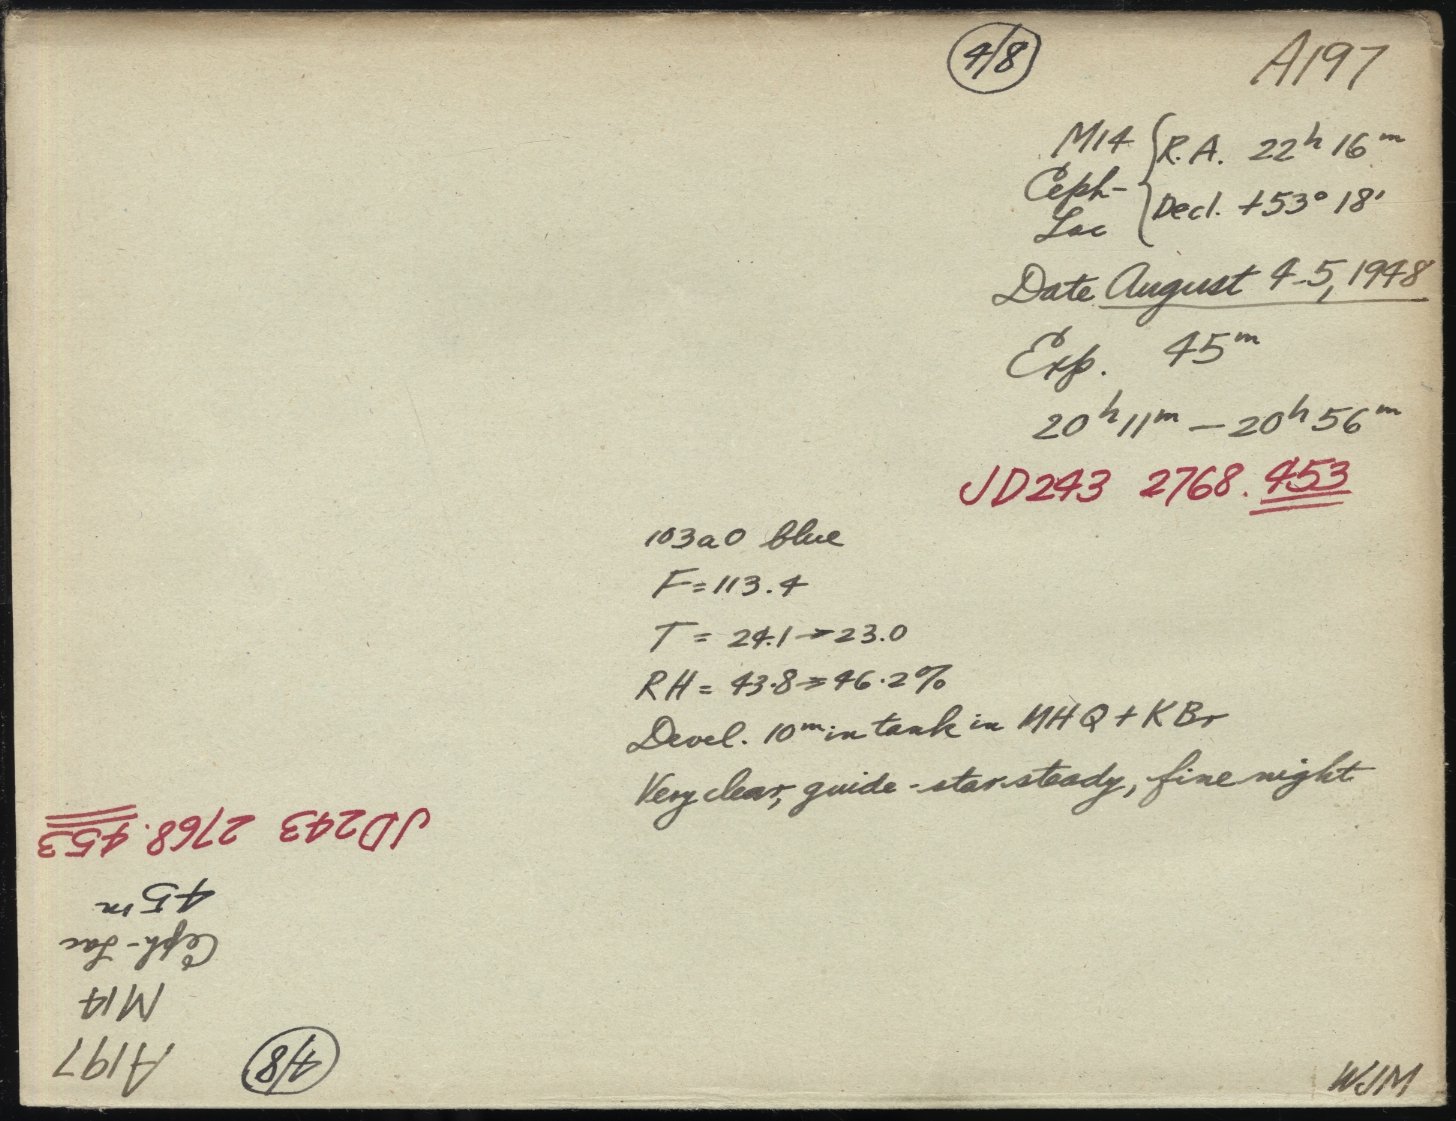 4/8
A197
M14 R.A. 22h 16m
Ceph-
Lac Decl. +53° 18'
Date August 4-5, 1948
Exp. 45m
20h 11m — 20h 56m
JD243 2768.453
103aO blue
F=113.4
T = 24.1→23.0
RH= 43.8→46.2%
Devel. 10m in tank in MHQ+KBr
Very clear, guide-star steady, fine night
WJM
4/8
A197
M14
Ceph-Lac
45m
JD243 2768.453